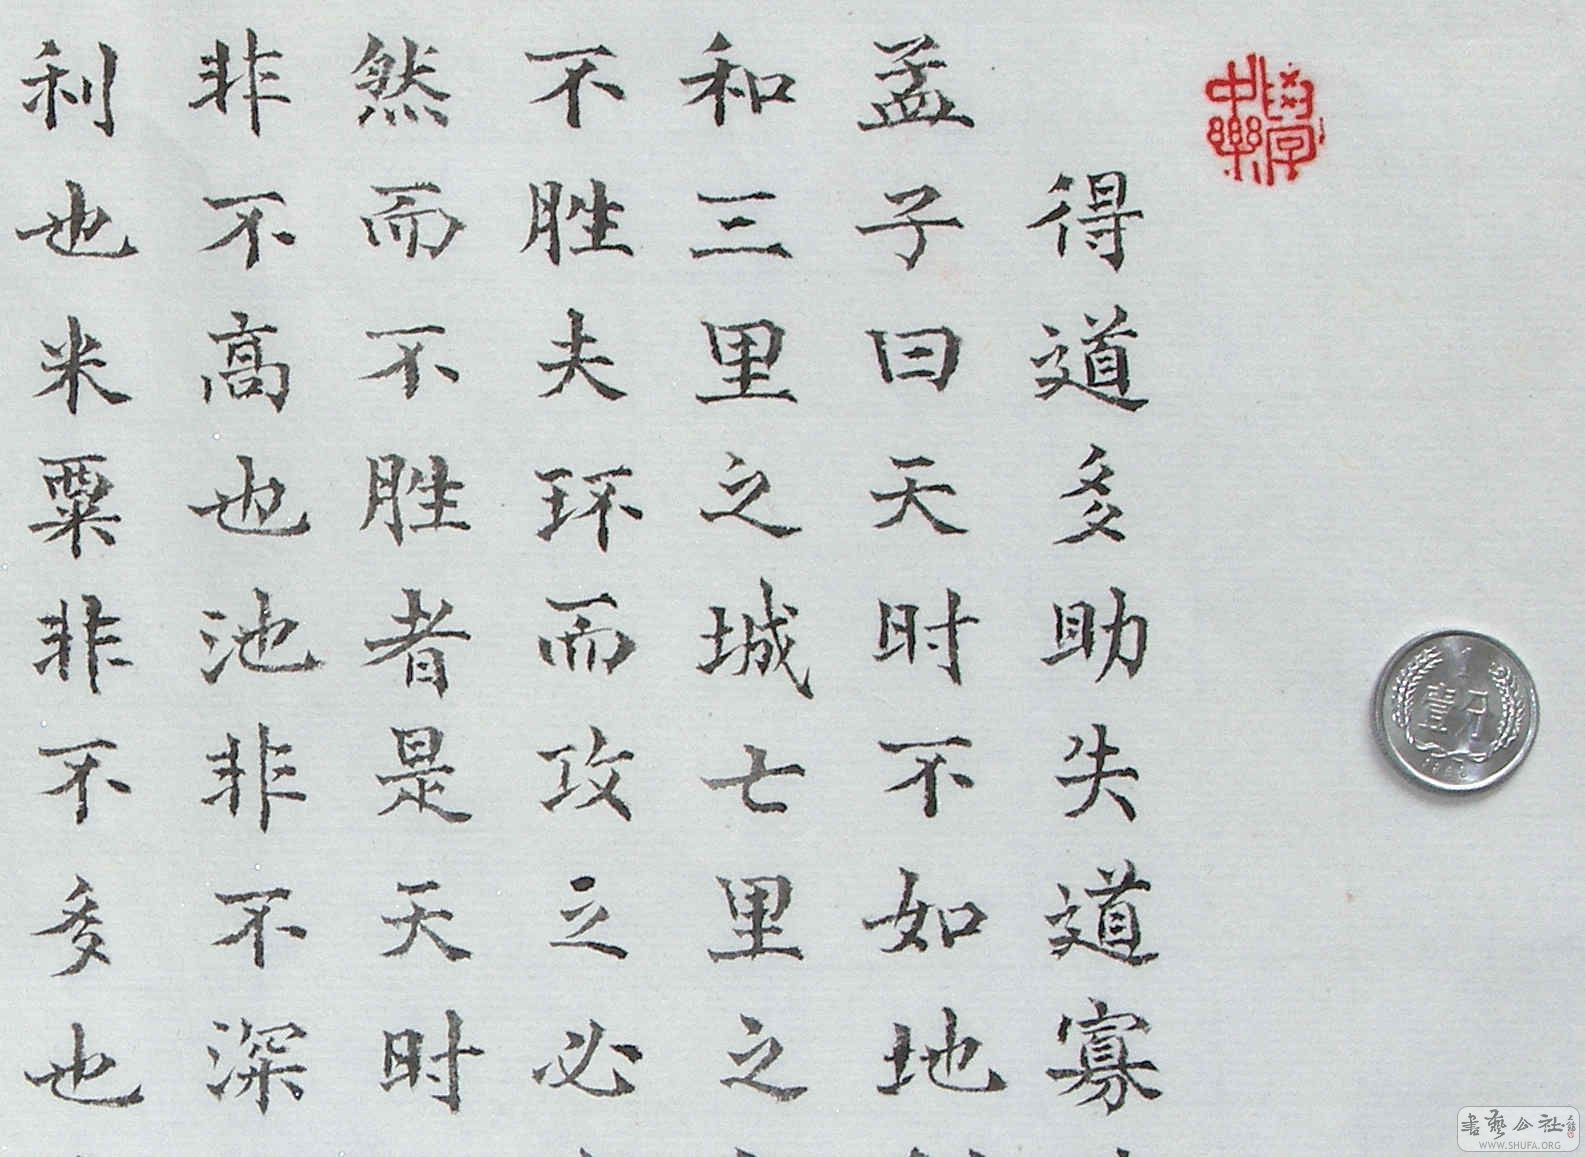 得道多助失道寡
孟子曰天时不如地
和三里之城七里之
不胜夫环而攻之必
然而不胜者是天时
非不高也池非不深
利也米粟非不多也
学中乐
壹分
书艺公社
WWW.SHUFA.ORG